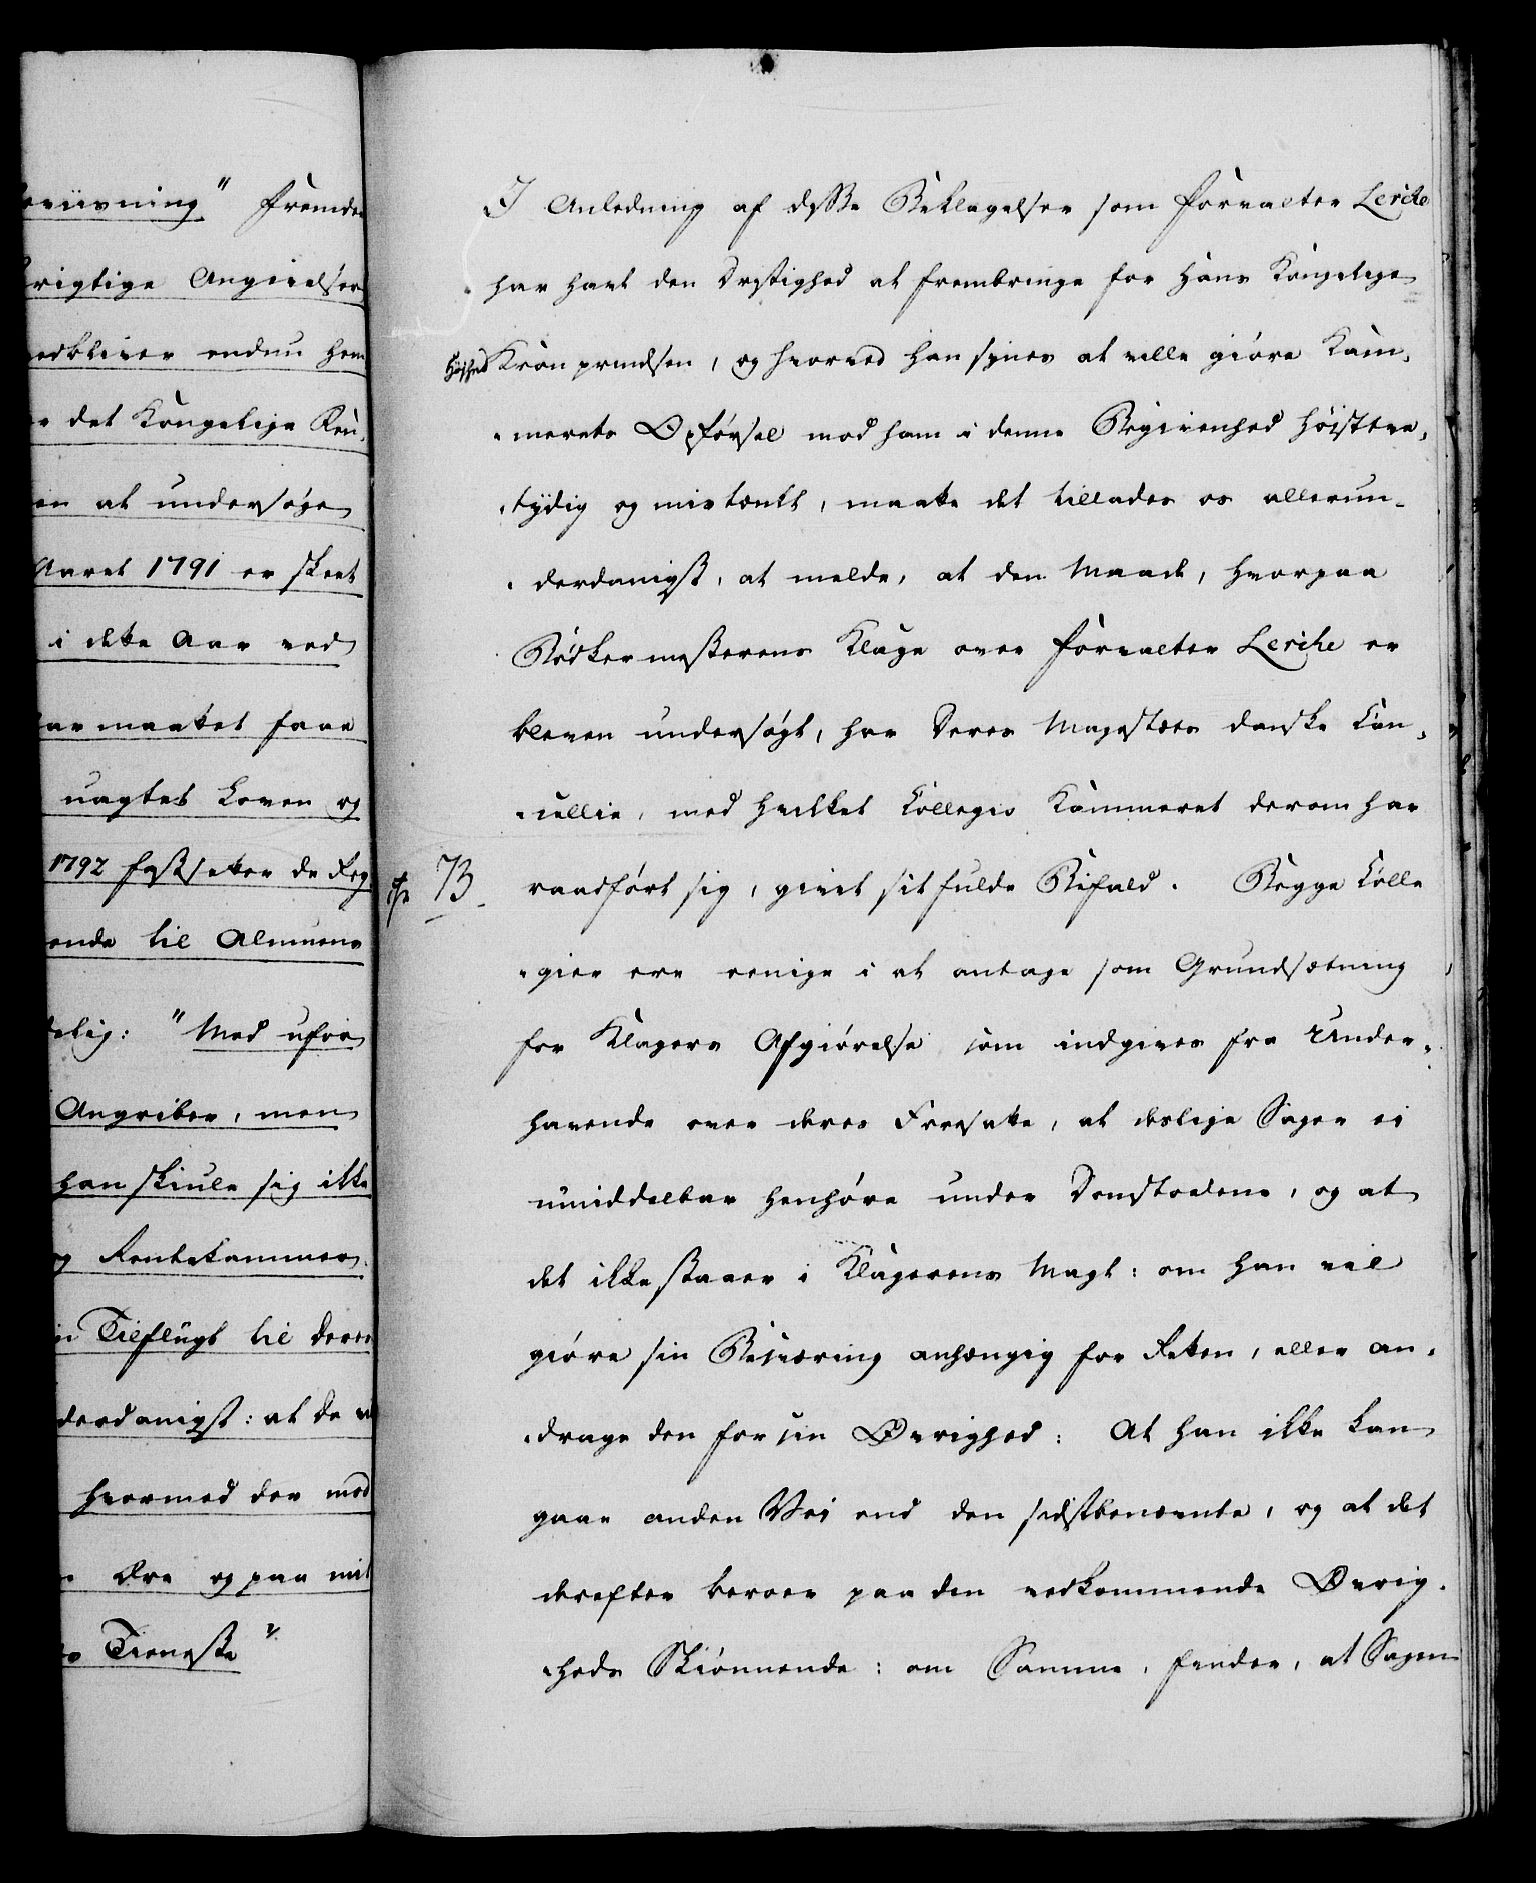 eviisning" fremde
rigtige Angivelser
vedbliver endnu hem
det Kongelige Ren
en at undersøge
Aaret 1791 er skeet
i dette Aar ved
har maattet faae
uagtet Loven og
1792 fastsætter de Reg
ende til Almuens
delig: "Med ufor
Angriber, men
han skiule sig ikke
og Rentekammer
in Tilflugt til deres
derdanigst: at De
hvormed der mod
Ære og paa mit
Tieneste"
I Anledning af disse Beklagelser som Forvalter Lerche
har havt den Drstighed at frembringe for Hans Kongelige
Høihed Kronprindsen, og hvorved han synes at ville giøre Kam-
merets Opførsel mod ham i denne Begivenhed høisttve-
tydig og mistænkt, maatte det tillades os allerun-
derdanigst, at melde, at den Maade, hvorpaa
Bødkermesterens Klage over Forvalter Lerche er
bleven undersøgt, har Deres Majestæts danske Can-
cellie, med hvilket Collegio Kammeret derom har
73 raadført sig, givet sit fulde Bifald. Begge Colle
gier ere eenige i at antage som Grundsætning
for Klagers Afgiørelse som indgives fra Under-
havende over deres Foresatte, at deslige Sager ei
umiddelbar henhøre under Domstolene, og at
det ikke staaer i Klagerens Magt: om han vil
giøre sin Besværing anhængig for Retten, eller an-
drage den for sin Øvrighed: At han ikke kan
gaae anden Vei end den sidstbenævnte, og at det
derefter beroer paa den vedkommende Øvrig-
heds Skiønnende: om Samme, finder, at Sagen